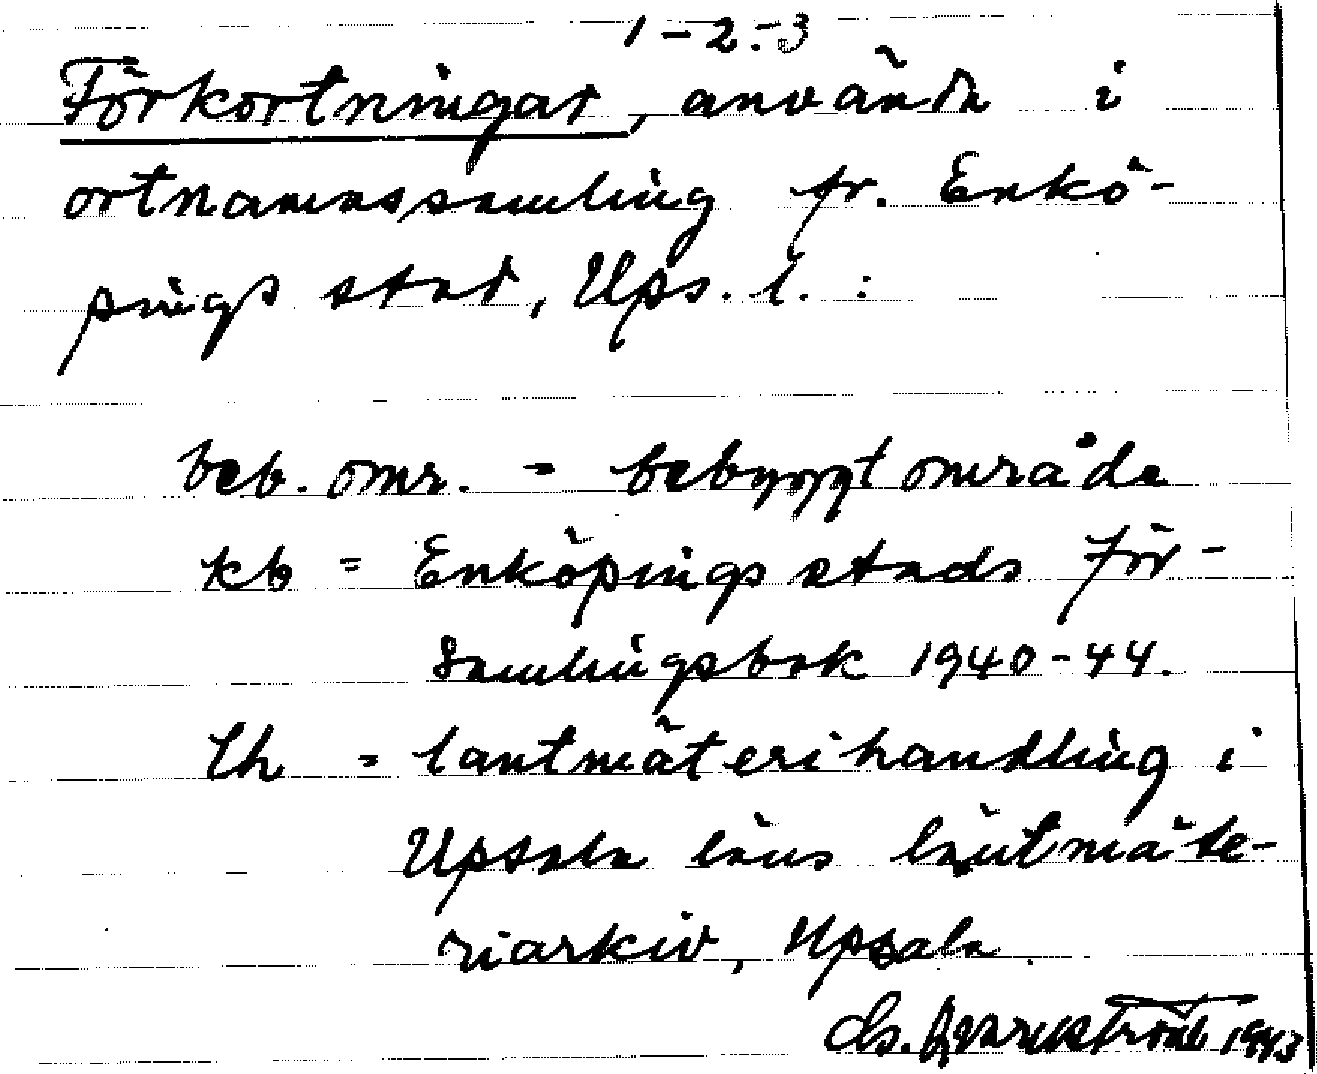 1-2.-3
Förkortningar, använda i
ortnamnssamling fr. Enkö-
pings stad, Ups. l. :
beb. omr. = bebyggt område
kb = Enköpings stads för-
samlingsbok 1940-44.
lh = lantmäterihandling i
Upsala läns lantmäte-
riarkiv, Upsala.
1943